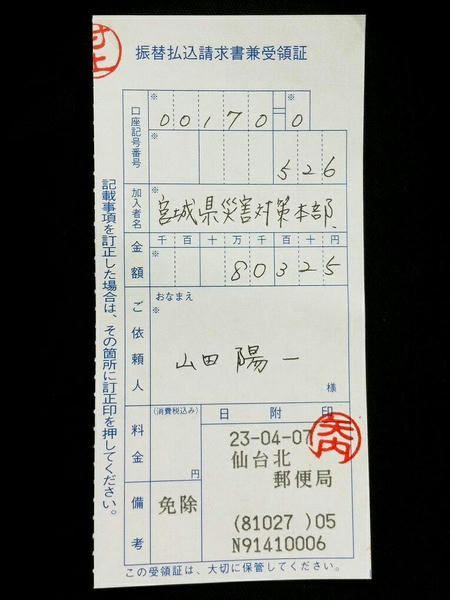 村上
振替払込請求書兼受領証
口座記号番号
※
00170=0
※
526
加入者名
※
宮城県災害対策本部
金額
千百十万千百十円
※
80325
ご依頼人
おなまえ
※
山田陽一
様
料金
(消費税込み)
円
備考
免除
日附印
23-04-07
仙台北
郵便局
(81027 )05
N91410006
矢内
記載事項を訂正した場合は、その箇所に訂正印を押してください。
この受領証は、大切に保管してください。